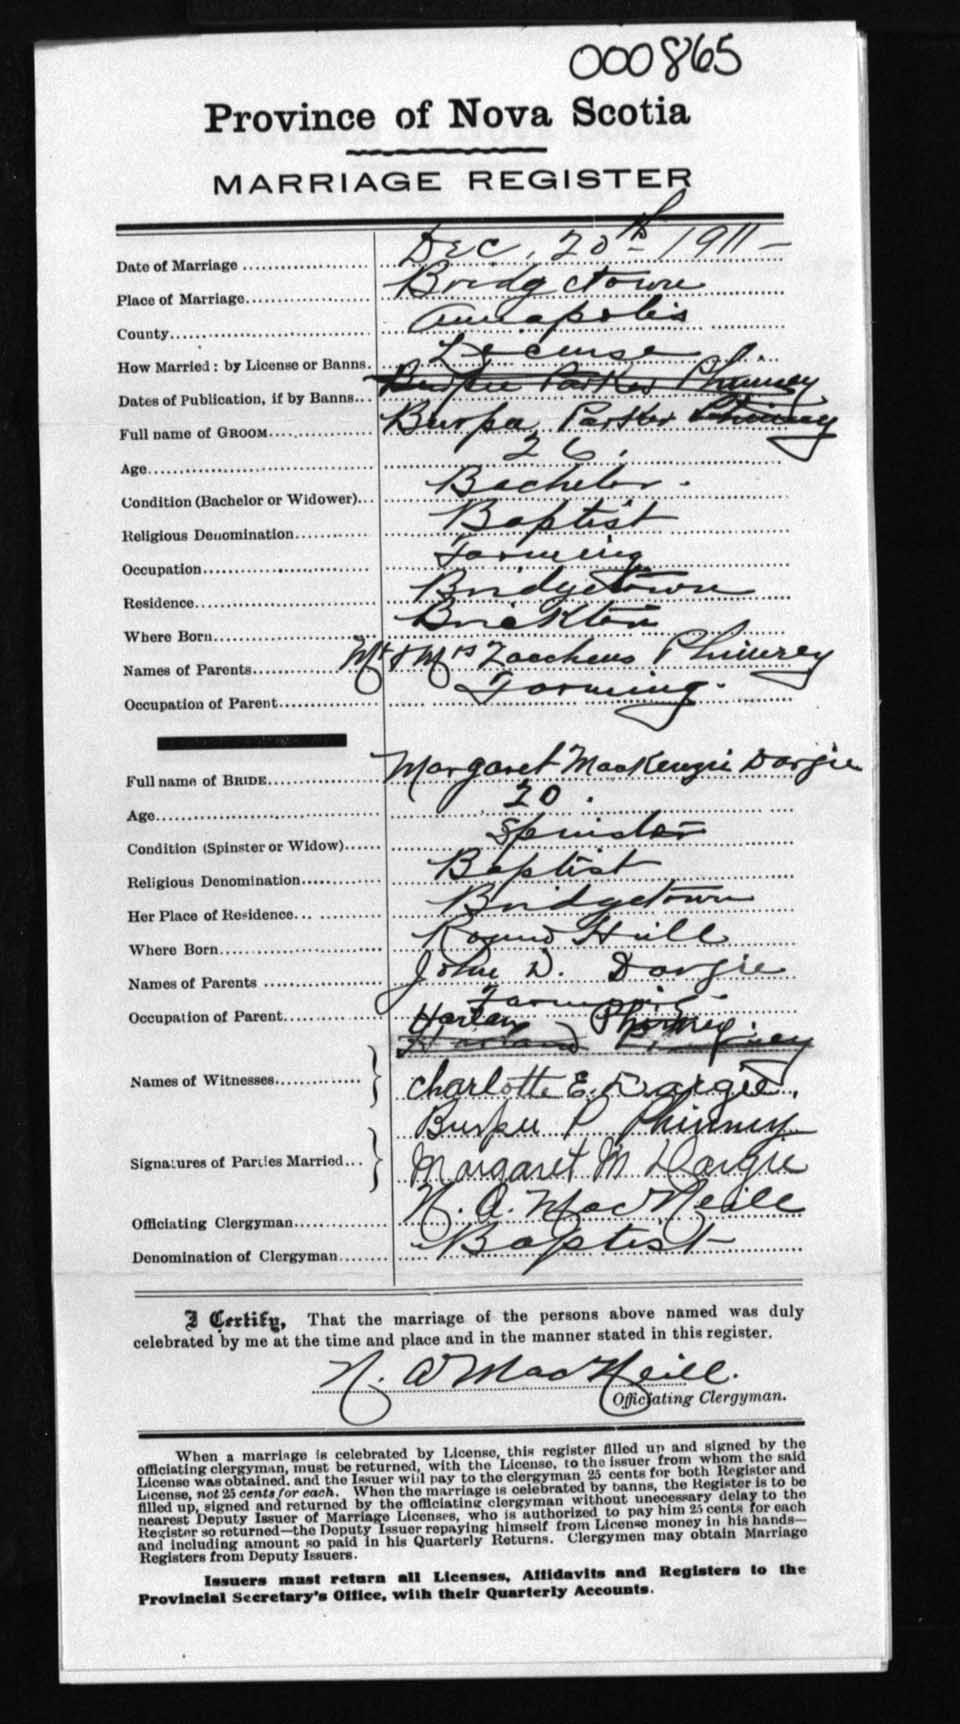 000865
Province of Nova Scotia
MARRIAGE REGISTER
Date of Marriage Dec. 20th 1911
Place of Marriage Bridgetown
County Annapolis
How Married: by License or Banns. License
Dates of Publication, if by Banns Burpee Parker Phinney
Full name of GROOM Burpee Parker Phinney
Age 26.
Condition (Bachelor or Widower) Bachelor.
Religious Denomination Baptist
Occupation Farming
Residence Bridgetown
Where Born Brickton
Names of Parents Mr & Mrs Zaccheus Phinney
Occupation of Parent Farming.
Full name of BRIDE Margaret MacKenzie Dargie
Age 20.
Condition (Spinster or Widow) Spinster
Religious Denomination Baptist
Her Place of Residence Bridgetown
Where Born Round Hill
Names of Parents John D. Dargie
Occupation of Parent Farming.
Harlan Phinney.
Harland Phinney
Names of Witnesses
Charlotte E. Dargie.
Burpee P Phinney
Signatures of Parties Married Margaret M Dargie
Officiating Clergyman N. A. MacNeill
Denomination of Clergyman Baptist
I Certify, That the marriage of the persons above named was duly
celebrated by me at the time and place and in the manner stated in this register.
N. A MacNeill.
Officiating Clergyman.
When a marriage is celebrated by License, this register filled up and signed by the
officiating clergyman, must be returned, with the License, to the issuer from whom the said
License was obtained, and the Issuer will pay to the clergyman 25 cents for both Register and
License, not 25 cents for each. When the marriage is celebrated by banns, the Register is to be
filled up, signed and returned by the officiating clergyman without unnecessary delay to the
nearest Deputy Issuer of Marriage Licenses, who is authorized to pay him 25 cents for each
Register so returned—the Deputy Issuer repaying himself from License money in his hands—
and including amount so paid in his Quarterly Returns. Clergymen may obtain Marriage
Registers from Deputy Issuers.
Issuers must return all Licenses, Affidavits and Registers to the
Provincial Secretary's Office, with their Quarterly Accounts.